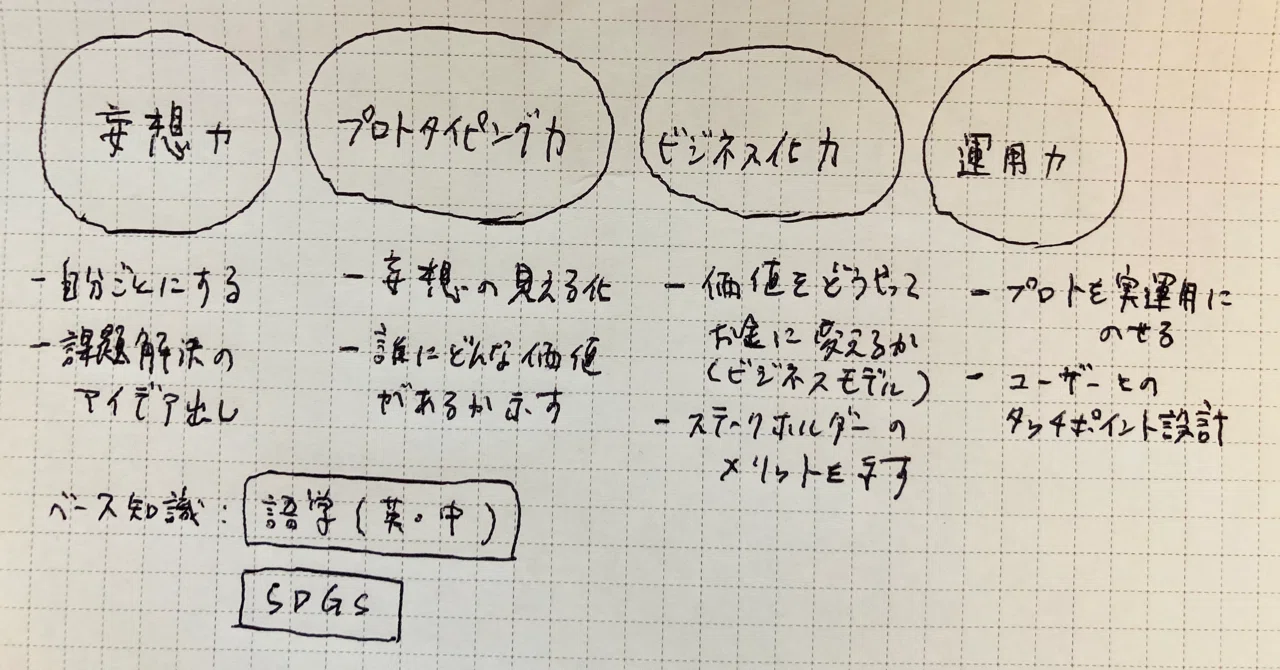 妄想力
プロトタイピング力
ビジネス化力
運用力
- 自分ごとにする
- 課題解決の
アイデア出し
- 妄想の見える化
- 誰にどんな価値
があるか示す
- 価値をどうやって
お金に変えるか
(ビジネスモデル)
- ステークホルダーの
メリットを示す
- プロトを実運用に
のせる
- ユーザーとの
タッチポイント設計
ベース知識:
語学(英・中)
SDGs